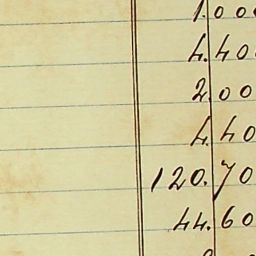 1.000
4.400
200
4.40
120.70
44.60